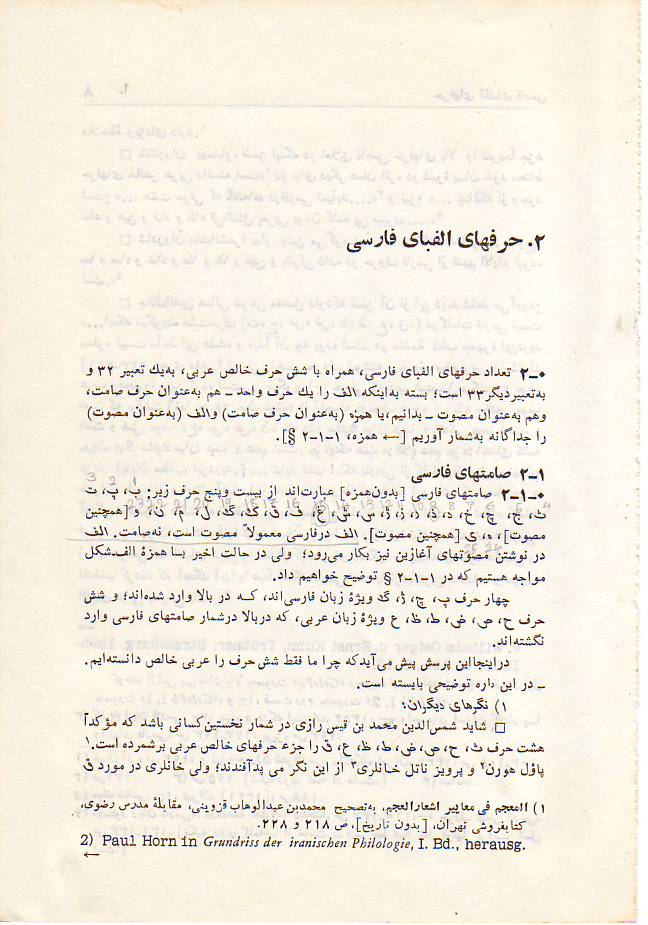 ۲. حرفهای الفبای فارسی
۲-۰ تعداد حرفهای الفبای فارسی، همراه با شش حرف خالص عربی، به‌یك تعبیر ۳۲ و
به‌تعبیر دیگر ۳۳ است؛ بسته به‌اینکه الف را یك حرف واحد - هم به‌عنوان حرف صامت،
وهم به‌عنوان مصوت - بدانیم، یا همزه (به‌عنوان حرف صامت) والف (به‌عنوان مصوت)
را جداگانه به‌شمار آوریم [← همزه، ۱-۱-۲ §].
۲-۱ صامتهای فارسی
3 2 1
۲-۱-۰ صامتهای فارسی [بدون‌همزه] عبارت‌اند از بیست وپنج حرف زیر: ب، پ، ت
ث، ج، چ، خ، د، ذ، ر، ز، ژ، س، ش، غ، ف، ق، ك، گ، ل، م، ن، و [همچنین
مصوت]، ه، ی [همچنین مصوت]. الف درفارسی معمولاً مصوت است، نه‌صامت. الف
در نوشتن مصوتهای آغازین نیز بکار می‌رود؛ ولی در حالت اخیر بـا همزهٔ الف‌شکل
مواجه هستیم که در ۱-۱-۲ § توضیح خواهیم داد.
چهار حرف پ، چ، ژ، گ ویژهٔ زبان فارسی‌اند، کـه در بالا وارد شده‌اند؛ و شش
حرف ح، ص، ض، ط، ظ، ع ویژهٔ زبان عربی، که دربالا درشمار صامتهای فارسی وارد
نگشته‌اند.
دراینجااین پرسش پیش می‌آیدکه چرا ما فقط شش حرف را عربی خالص دانسته‌ایم.
- در این باره توضیحی بایسته است.
۱) نگرهای دیگران:
□ شاید شمس‌الدین محمد بن قیس رازی در شمار نخستین‌کسانی باشد که مؤکداً
هشت حرف ث، ح، ص، ض، ط، ظ، ع، ق را جزء حرفهای خالص عربی برشمرده است.۱
پاؤل هورن۲ و پرویز ناتل خـانلری۳ از این نگر می پدآفندند؛ ولی خانلری در مورد ق
۱) المعجم فی معاییر اشعارالعجم، به‌تصحیح محمدبن عبدالوهاب قزوینی، مقابلهٔ مدرس رضوی،
کتابفروشی تهران، [بدون تاریخ]، ص ۲۱۸ و ۲۲۸.
2) Paul Horn in Grundriss der iranischen Philologie, I. Bd., herausg.
←